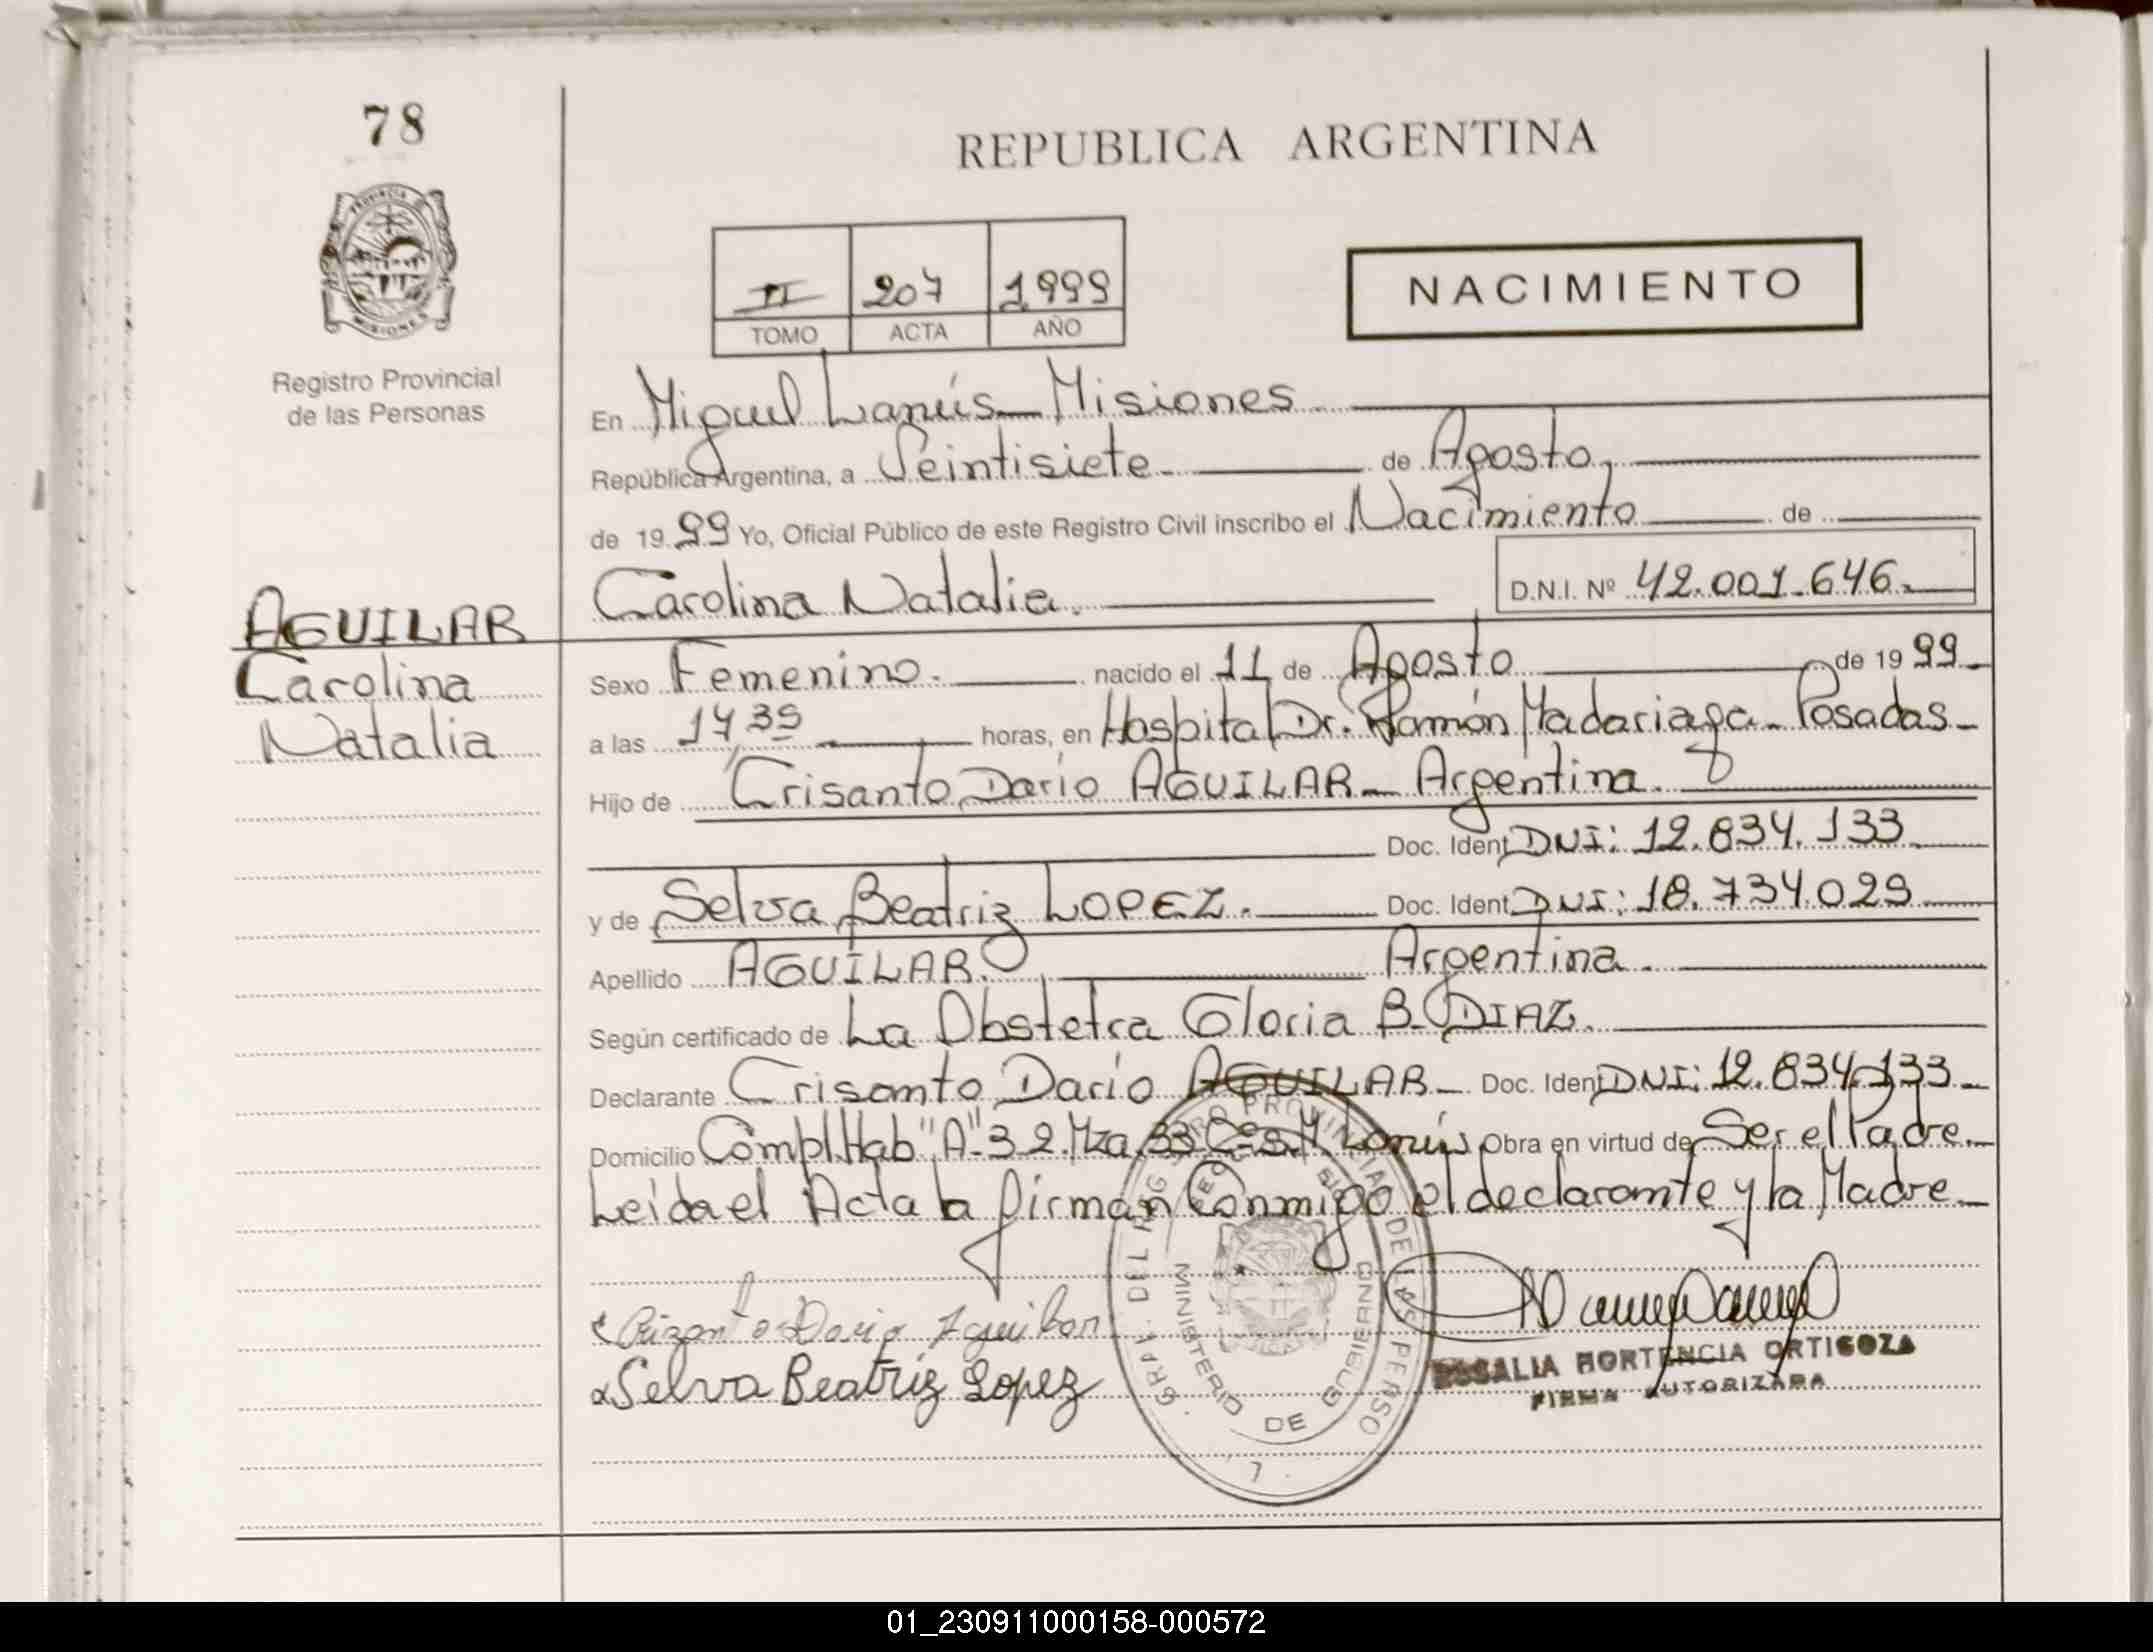 78
REPUBLICA ARGENTINA
PROVINCIA DE
MISIONES
Registro Provincial
de las Personas
II 207 1999
TOMO ACTA AÑO
NACIMIENTO
En Miguel Lanús Misiones
República Argentina, a Veintisiete de Agosto,
de 19 99 Yo, Oficial Público de este Registro Civil inscribo el Nacimiento de
Carolina Natalia. D.N.I. Nº 42.001.646.
AGUILAR
Carolina
Natalia
Sexo Femenino. nacido el 11 de Agosto de 19 99
a las 14,35 horas, en Hospital Dr. Ramón Madariaga - Posadas -
Hijo de Crisanto Dario AGUILAR - Argentina.
Doc. Ident DNI: 12.834.133
y de Selva Beatriz LOPEZ. Doc. Ident DNI: 18.734.029
Apellido AGUILAR. Argentina.
Según certificado de La Obstetra Gloria B. DIAZ.
Declarante Crisanto Dario AGUILAR - Doc. Ident DNI: 12.834.133
Domicilio Compl. Hab "A" 32. Mza 33 M. Lanús Obra en virtud de Ser el Padre.
Leida el Acta la firman Conmigo el declarante y la Madre
Crizanto Dario Aguilar
Selva Beatriz Lopez
ROSALIA HORTENCIA ORTIGOZA
FIRMA AUTORIZADA
GRAL. DEL REGISTRO PROVINCIAL DE LAS PERSO
MINISTERIO DE GOBIERNO
7
01_230911000158-000572